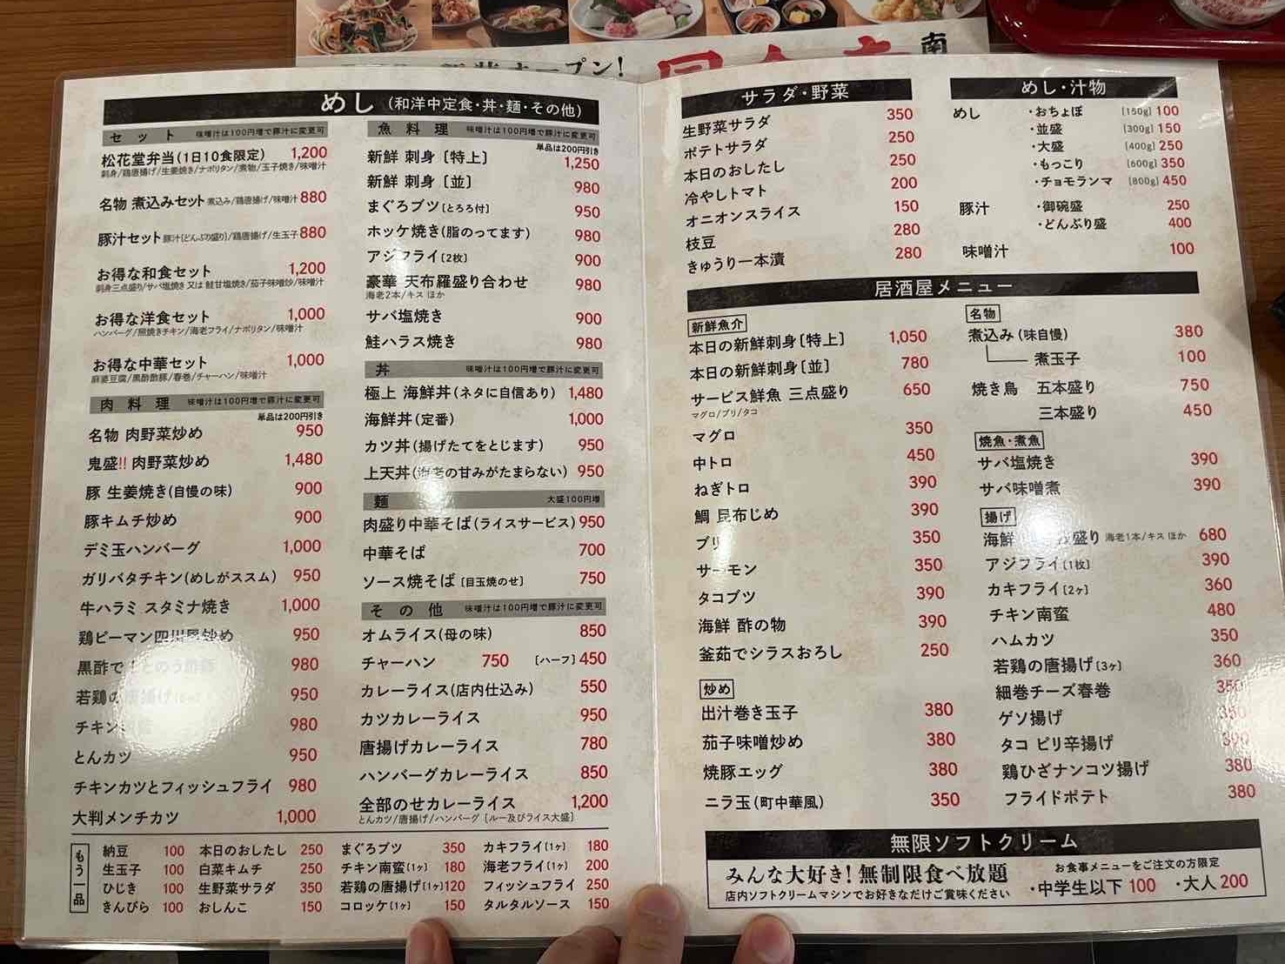 プン!
南
めし (和洋中定食・丼・麺・その他)
セット 味噌汁は100円増で豚汁に変更可
松花堂弁当(1日10食限定) 1,200
刺身/鶏唐揚げ/生姜焼き/ナポリタン/煮物/玉子焼き/味噌汁
名物 煮込みセット 煮込み/鶏唐揚げ/味噌汁 880
豚汁セット 豚汁(どんぶり盛り)/鶏唐揚げ/生玉子 880
お得な和食セット 1,200
刺身三点盛り/サバ塩焼き 又は 鮭甘塩焼き/茄子味噌炒/味噌汁
お得な洋食セット 1,000
ハンバーグ/照焼きチキン/海老フライ/ナポリタン/味噌汁
お得な中華セット 1,000
麻婆豆腐/黒酢酢豚/春巻/チャーハン/味噌汁
肉料理 味噌汁は100円増で豚汁に変更可
単品は200円引き
名物 肉野菜炒め 950
鬼盛!! 肉野菜炒め 1,480
豚 生姜焼き(自慢の味) 900
豚キムチ炒め 900
デミ玉ハンバーグ 1,000
ガリバタチキン(めしがススム) 950
牛ハラミ スタミナ焼き 1,000
鶏ピーマン四川風炒め 950
黒酢で 980
若鶏の唐揚げ 950
チキン 980
とんカツ 950
チキンカツとフィッシュフライ 980
大判メンチカツ 1,000
魚料理 味噌汁は100円増で豚汁に変更可
単品は200円引き
新鮮 刺身〔特上〕 1,250
新鮮 刺身〔並〕 980
まぐろブツ〔とろろ付〕 950
ホッケ焼き(脂のってます) 980
アジフライ〔2枚〕 900
豪華 天布羅盛り合わせ 980
海老2本/キス ほか
サバ塩焼き 900
鮭ハラス焼き 980
丼 味噌汁は100円増で豚汁に変更可
極上 海鮮丼(ネタに自信あり) 1,480
海鮮丼(定番) 1,000
カツ丼(揚げたてをとじます) 950
上天丼(海老の甘みがたまらない) 950
麺 大盛100円増
肉盛り中華そば(ライスサービス) 950
中華そば 700
ソース焼そば〔目玉焼のせ〕 750
その他 味噌汁は100円増で豚汁に変更可
オムライス(母の味) 850
チャーハン 750 〔ハーフ〕450
カレーライス(店内仕込み) 550
カツカレーライス 950
唐揚げカレーライス 780
ハンバーグカレーライス 850
全部のせカレーライス 1,200
とんカツ/唐揚げ/ハンバーグ〔ルー及びライス大盛〕
もう一品
納豆 100 本日のおしたし 250 まぐろブツ 350 カキフライ(1ヶ) 180
生玉子 100 白菜キムチ 250 チキン南蛮(1ヶ) 180 海老フライ(1ヶ) 200
ひじき 100 生野菜サラダ 350 若鶏の唐揚げ(1ヶ) 120 フィッシュフライ 250
きんぴら 100 おしんこ 150 コロッケ(1ヶ) 150 タルタルソース 150
サラダ・野菜
生野菜サラダ 350
ポテトサラダ 250
本日のおしたし 250
冷やしトマト 200
オニオンスライス 150
枝豆 280
きゅうり一本漬 280
めし・汁物
めし ・おちょぼ [150g] 100
・並盛 [300g] 150
・大盛 [400g] 250
・もっこり [600g] 350
・チョモランマ [800g] 450
豚汁 ・御碗盛 250
・どんぶり盛 400
味噌汁 100
居酒屋メニュー
新鮮魚介
本日の新鮮刺身〔特上〕 1,050
本日の新鮮刺身〔並〕 780
サービス鮮魚 三点盛り 650
マグロ/ブリ/タコ
マグロ 350
中トロ 450
ねぎトロ 390
鯛 昆布じめ 390
ブリ 350
サーモン 350
タコブツ 390
海鮮 酢の物 390
釜茹でシラスおろし 250
炒め
出汁巻き玉子 380
茄子味噌炒め 380
焼豚エッグ 380
ニラ玉(町中華風) 350
名物
煮込み(味自慢) 380
煮玉子 100
焼き鳥 五本盛り 750
三本盛り 450
焼魚・煮魚
サバ塩焼き 390
サバ味噌煮 390
揚げ
海鮮 盛り 海老1本/キス ほか 680
アジフライ〔1枚〕 390
カキフライ〔2ヶ〕 360
チキン南蛮 480
ハムカツ 350
若鶏の唐揚げ〔3ヶ〕 360
細巻チーズ春巻 350
ゲソ揚げ 350
タコ ピリ辛揚げ 390
鶏ひざナンコツ揚げ 380
フライドポテト 380
無限ソフトクリーム
みんな大好き! 無制限食べ放題
店内ソフトクリームマシンでお好きなだけご賞味ください
お食事メニューをご注文の方限定
・中学生以下 100 ・大人 200